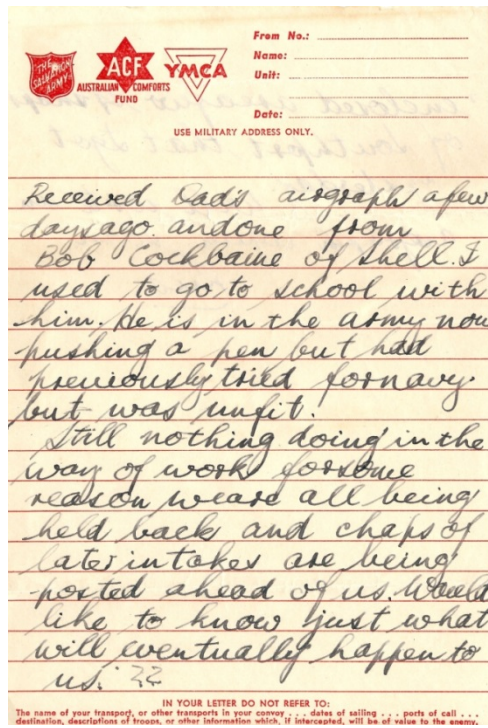 THE
SALVATION
ARMY
ACF
AUSTRALIAN COMFORTS
FUND
YMCA
From No.:
Name:
Unit:
Date:
USE MILITARY ADDRESS ONLY.
Received Dad's airgraph a few
days ago. and one from
Bob Cockbaine of Shell. I
used to go to school with
him. He is in the army now
pushing a pen but had
previously tried for navy.
but was unfit.
Still nothing doing in the
way of work for some
reason we are all being
held back and chaps of
later intakes are being
posted ahead of us. Would
like to know just what
will eventually happen to
us. ??
IN YOUR LETTER DO NOT REFER TO:
The name of your transport, or other transports in your convoy . . . dates of sailing . . . ports of call . . .
destination, descriptions of troops, or other information which, if intercepted, will be of value to the enemy.